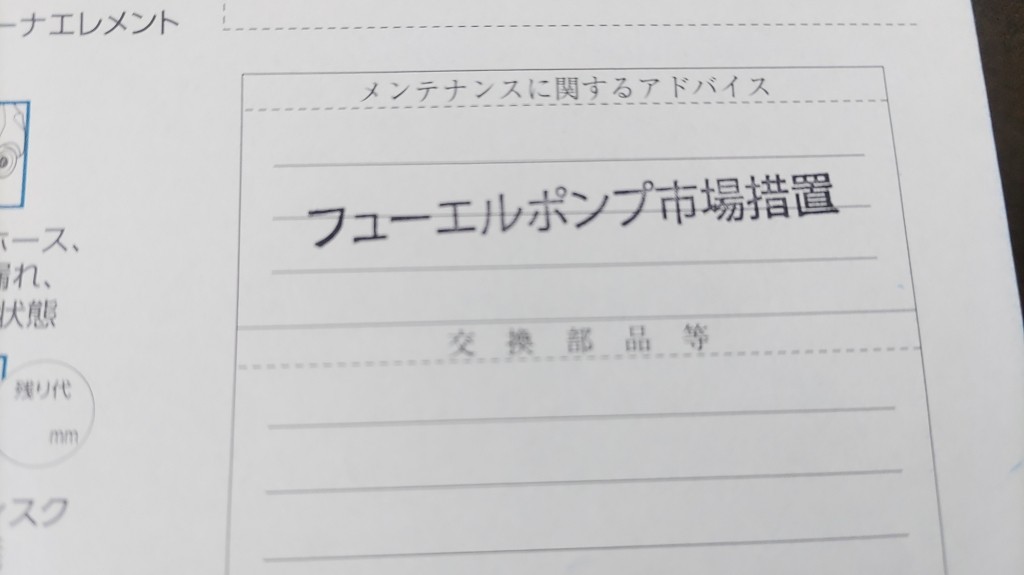 ーナエレメント
メンテナンスに関するアドバイス
フューエルポンプ市場措置
ホース、
漏れ、
状態
交換部品等
残り代
mm
ィスク